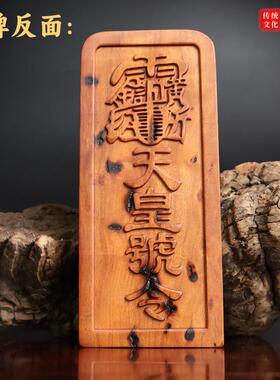 牌反面：
传统
文化
天皇號令